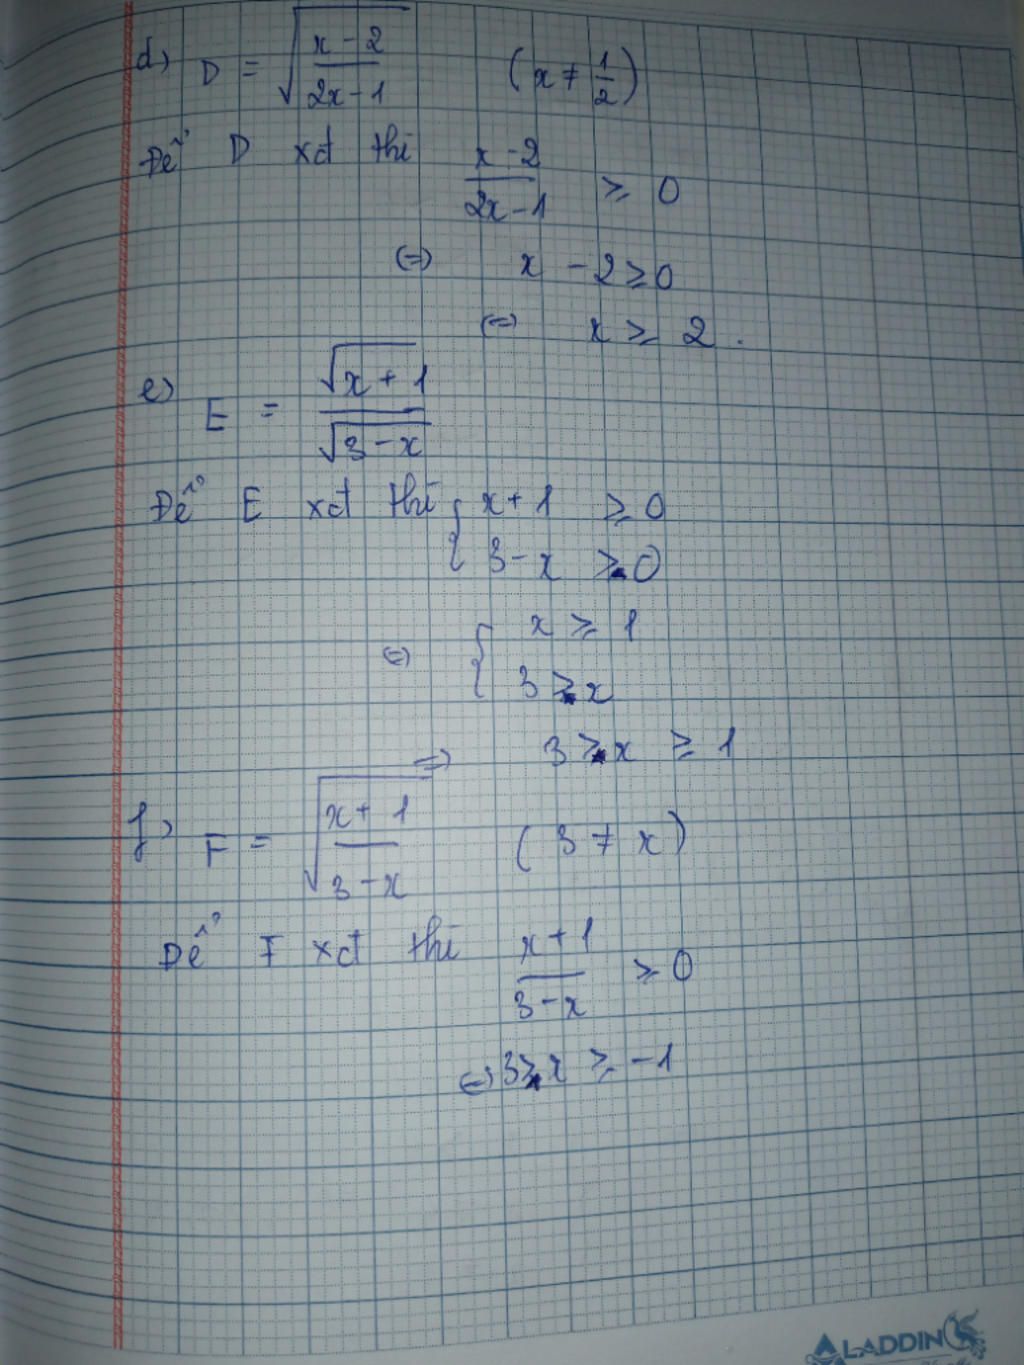 d) D = √((x - 2)/(2x - 1)) (x ≠ 1/2)
Để D xđ thì (x - 2)/(2x - 1) ≥ 0
(=) x - 2 ≥ 0
(=) x ≥ 2.
e) E = √(x + 1)/√(3 - x)
Để E xđ thì { x + 1 ≥ 0
3 - x > 0
(=) { x ≥ 1
3 > x
=> 3 > x ≥ 1
f) F = √((x + 1)/(3 - x)) (3 ≠ x)
Để F xđ thì (x + 1)/(3 - x) ≥ 0
(=) 3 > x ≥ -1
ALADDIN